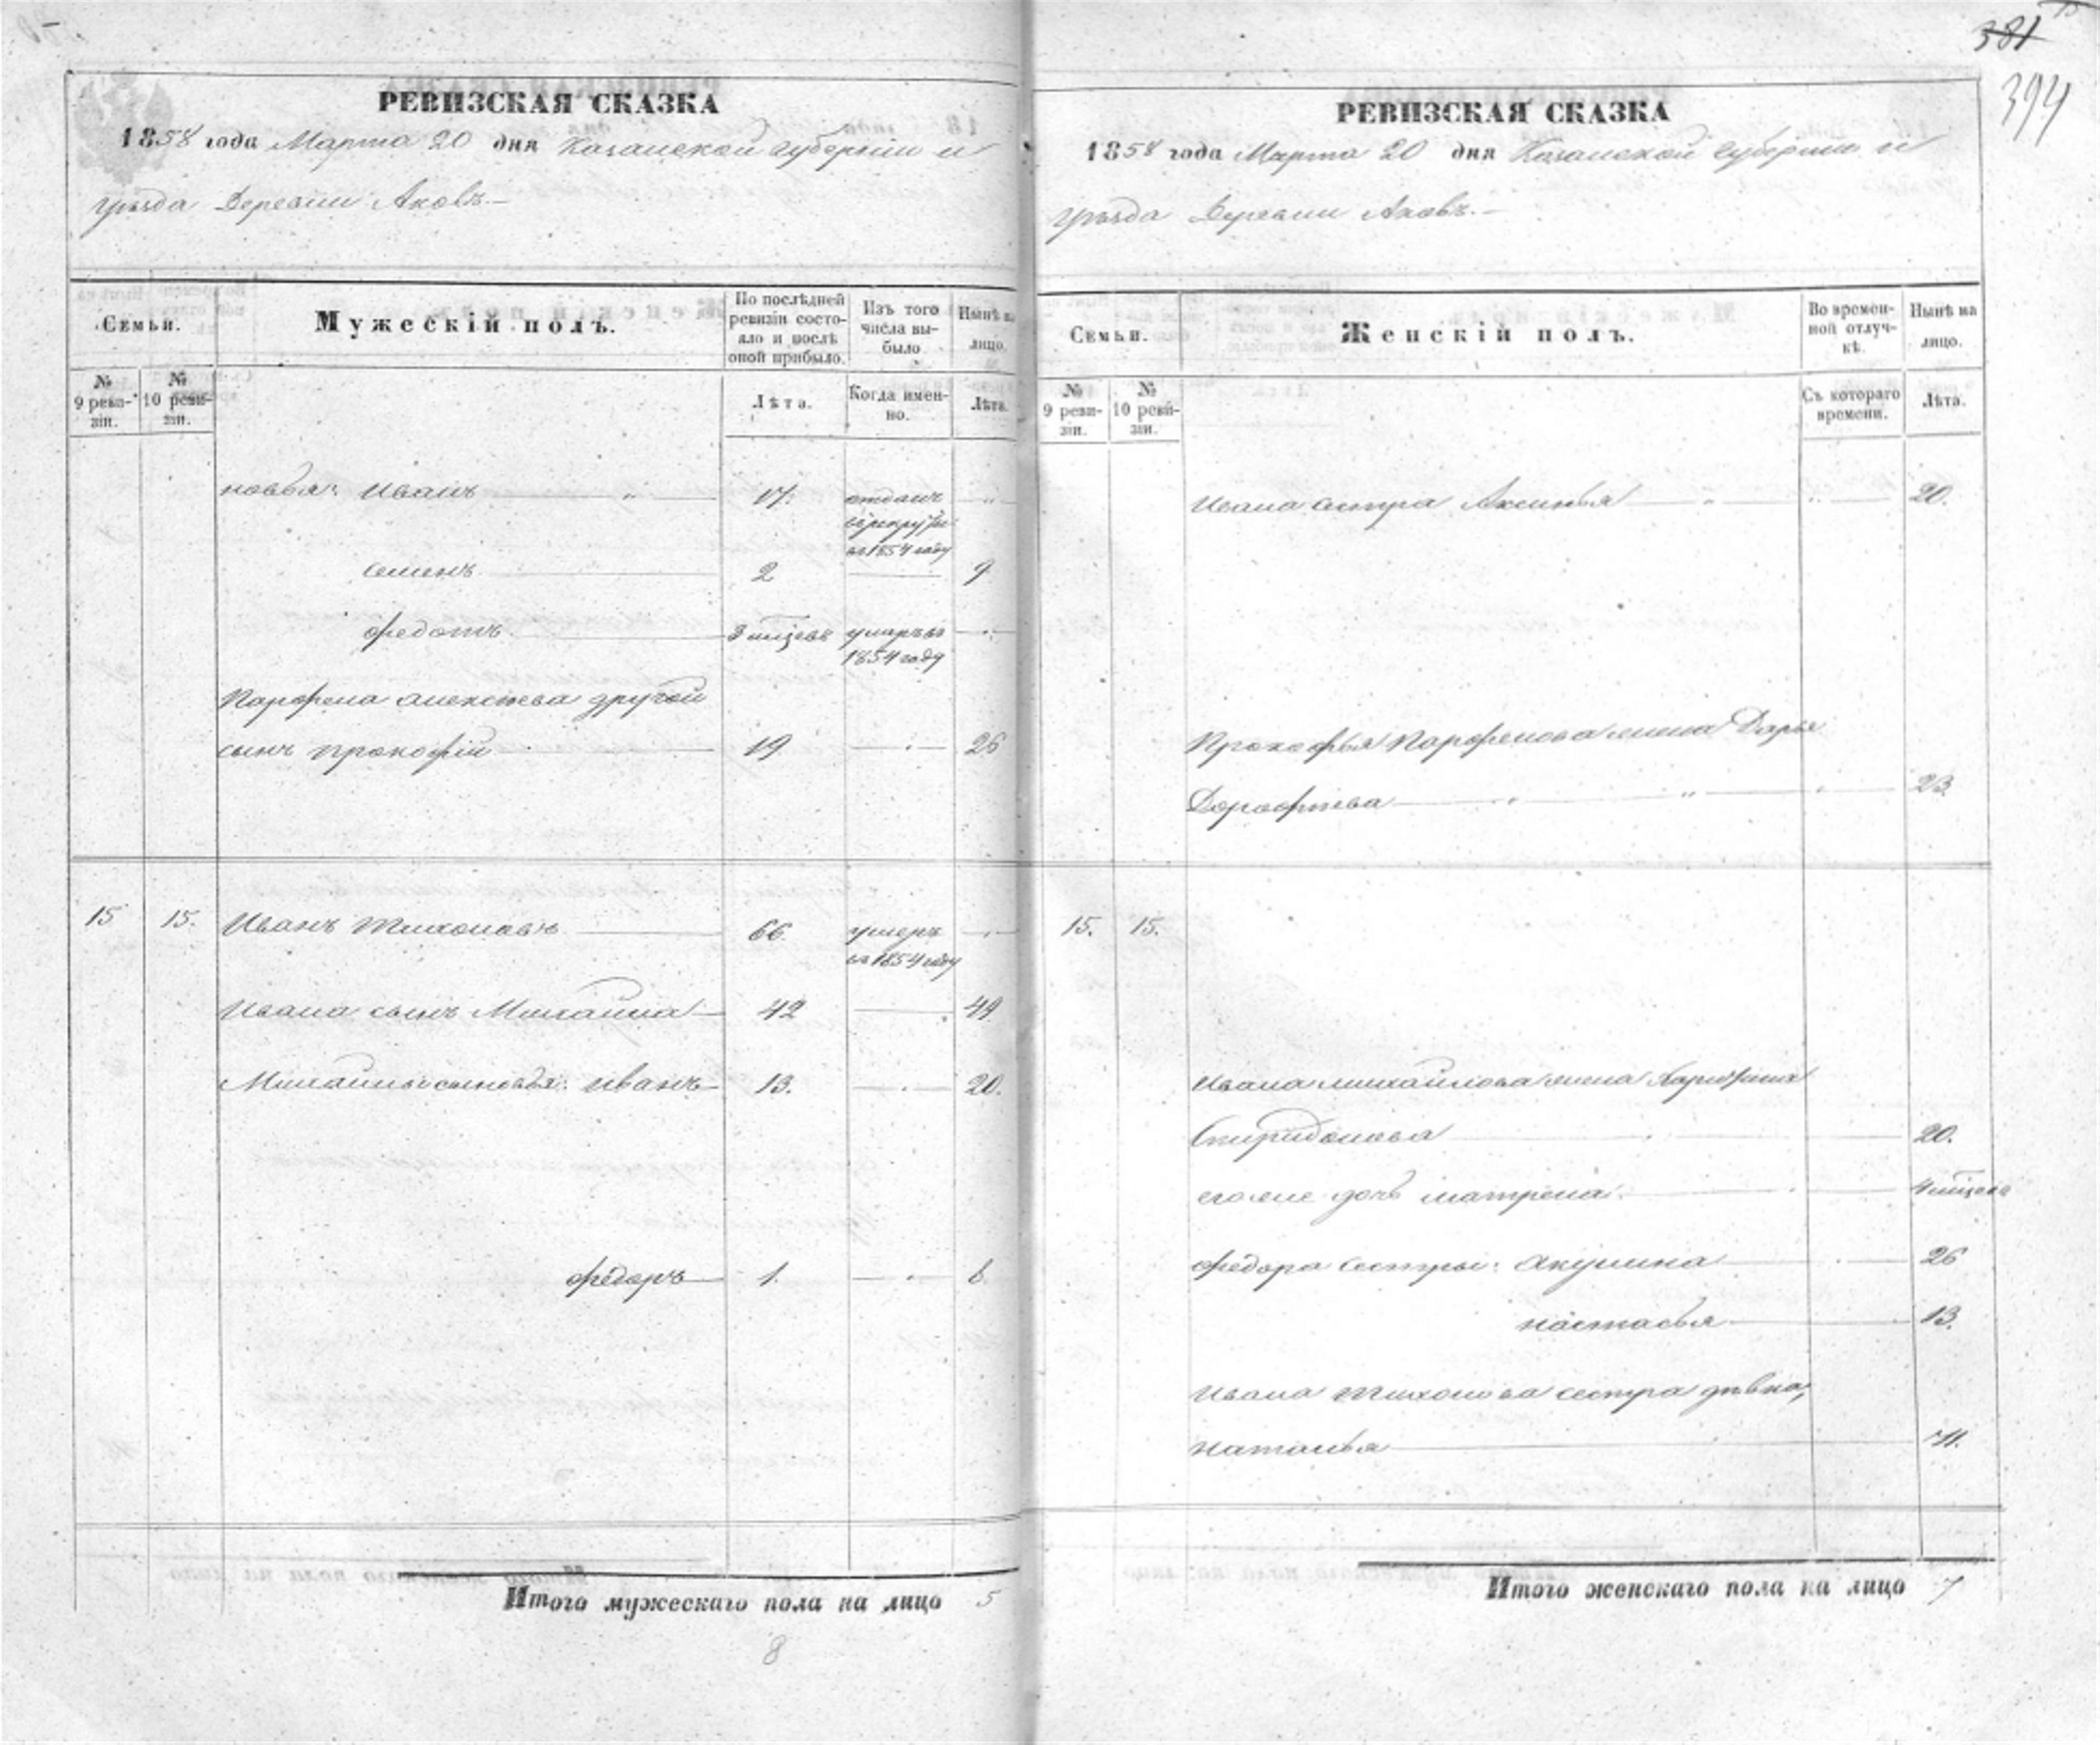 381
394
РЕВИЗСКАЯ СКАЗКА
1858 года Марта 20 дня Казанской губернии и
уѣзда Деревни Аковъ.
Семьи.
Мужескій полъ.
По послѣдней ревизіи состояло и послѣ оной прибыло.
Изъ того числа выбыло
Нынѣ на лицо.
№ 9 ревизіи.
№ 10 ревизіи.
Лѣта.
Когда именно.
Лѣта.
новья: Иванъ 17. отданъ
въ рекруты
въ 1854 году
Семенъ 2 9
Федотъ 3 мѣсяцевъ умеръ въ
1854 году
Парфена Алексѣева другой
сынъ Прокофій 19 26
15 15. Иванъ Тихоновъ 66 умеръ
въ 1854 году
Ивана сынъ Михайла 42 49
Михайлы сыновья: Иванъ 13. 20.
Федоръ 1. 8
Итого мужескаго пола на лицо 5
8
РЕВИЗСКАЯ СКАЗКА
1858 года Марта 20 дня Казанской губернии и
уѣзда Деревни Аковъ.
Семьи.
Женскій полъ.
Во временной отлучкѣ.
Нынѣ на лицо.
№ 9 ревизіи.
№ 10 ревизіи.
Съ котораго времени.
Лѣта.
Ивана сестра Аксинья 20.
Прокофья Парфенова жена Дарья
Дорофеева 23.
15. 15.
Ивана Михайлова жена
Спиридонова 20.
его же дочь Матрена 4 мѣсяца
Федора сестры: Акулина 26
Настасья 13.
Ивана Тихонова сестра дѣвка,
Наталья 71.
Итого женскаго пола на лицо 7